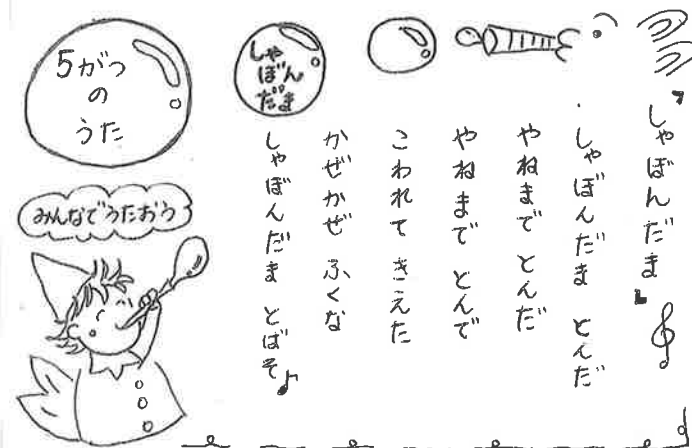 『しゃぼんだま』
しゃぼんだま とんだ
やねまで とんだ
やねまで とんで
こわれて きえた
かぜかぜ ふくな
しゃぼんだま とばそ
しゃ
ぼん
だま
5がつ
の
うた
みんなでうたおう